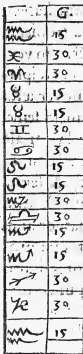 G.
♒ 15
♓ 30
♈ 30
♉ 15
♉ 15
♊ 30
♋ 30
♌ 15
♌ 15
♍ 30
♎ 30
♏ 15
♏ 15
♐ 30
♑ 30
♒ 15